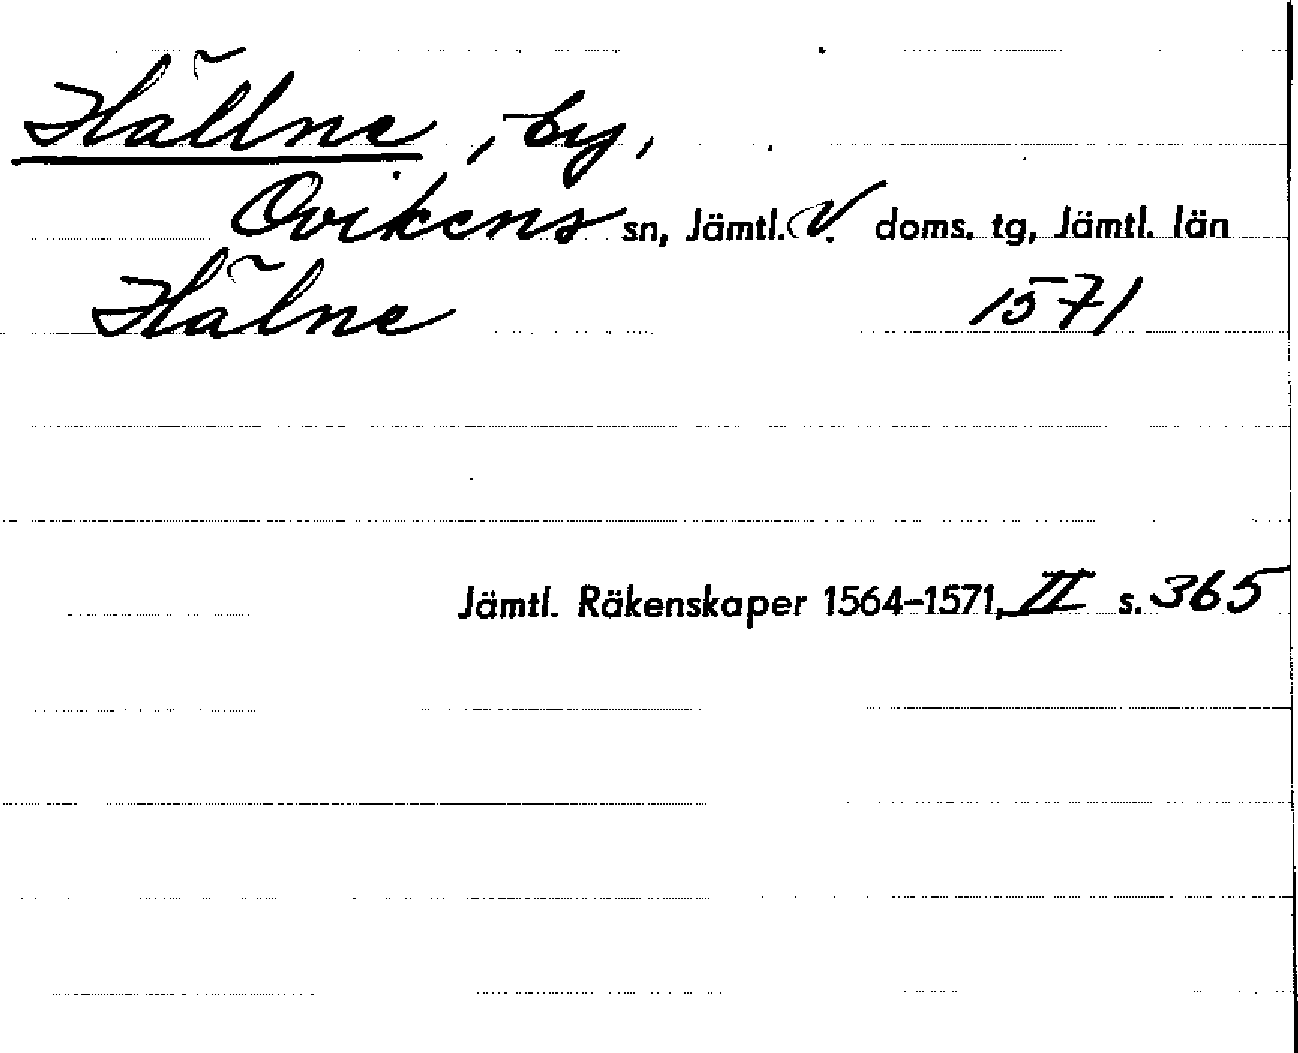 Hällne, by,
Ovikens sn, Jämtl. V. doms. tg, Jämtl. län
Hälne 1571
Jämtl. Räkenskaper 1564-1571, II s. 365